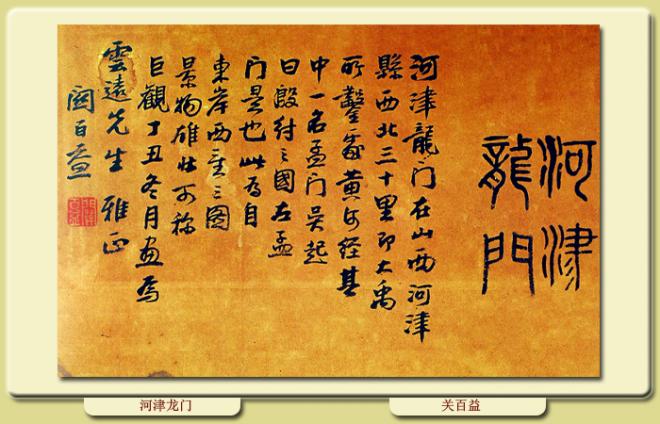 河津
龍門
河津龍门在山西河津
縣西北三十里即大禹
所鑿處黄河經其
中一名孟门吴起
曰殷纣之國左孟
门是也此為自
東岸西望之圖
景物雄壮可称
巨觀丁丑冬月画為
雲遠先生雅正
関百益
河津龙门
关百益